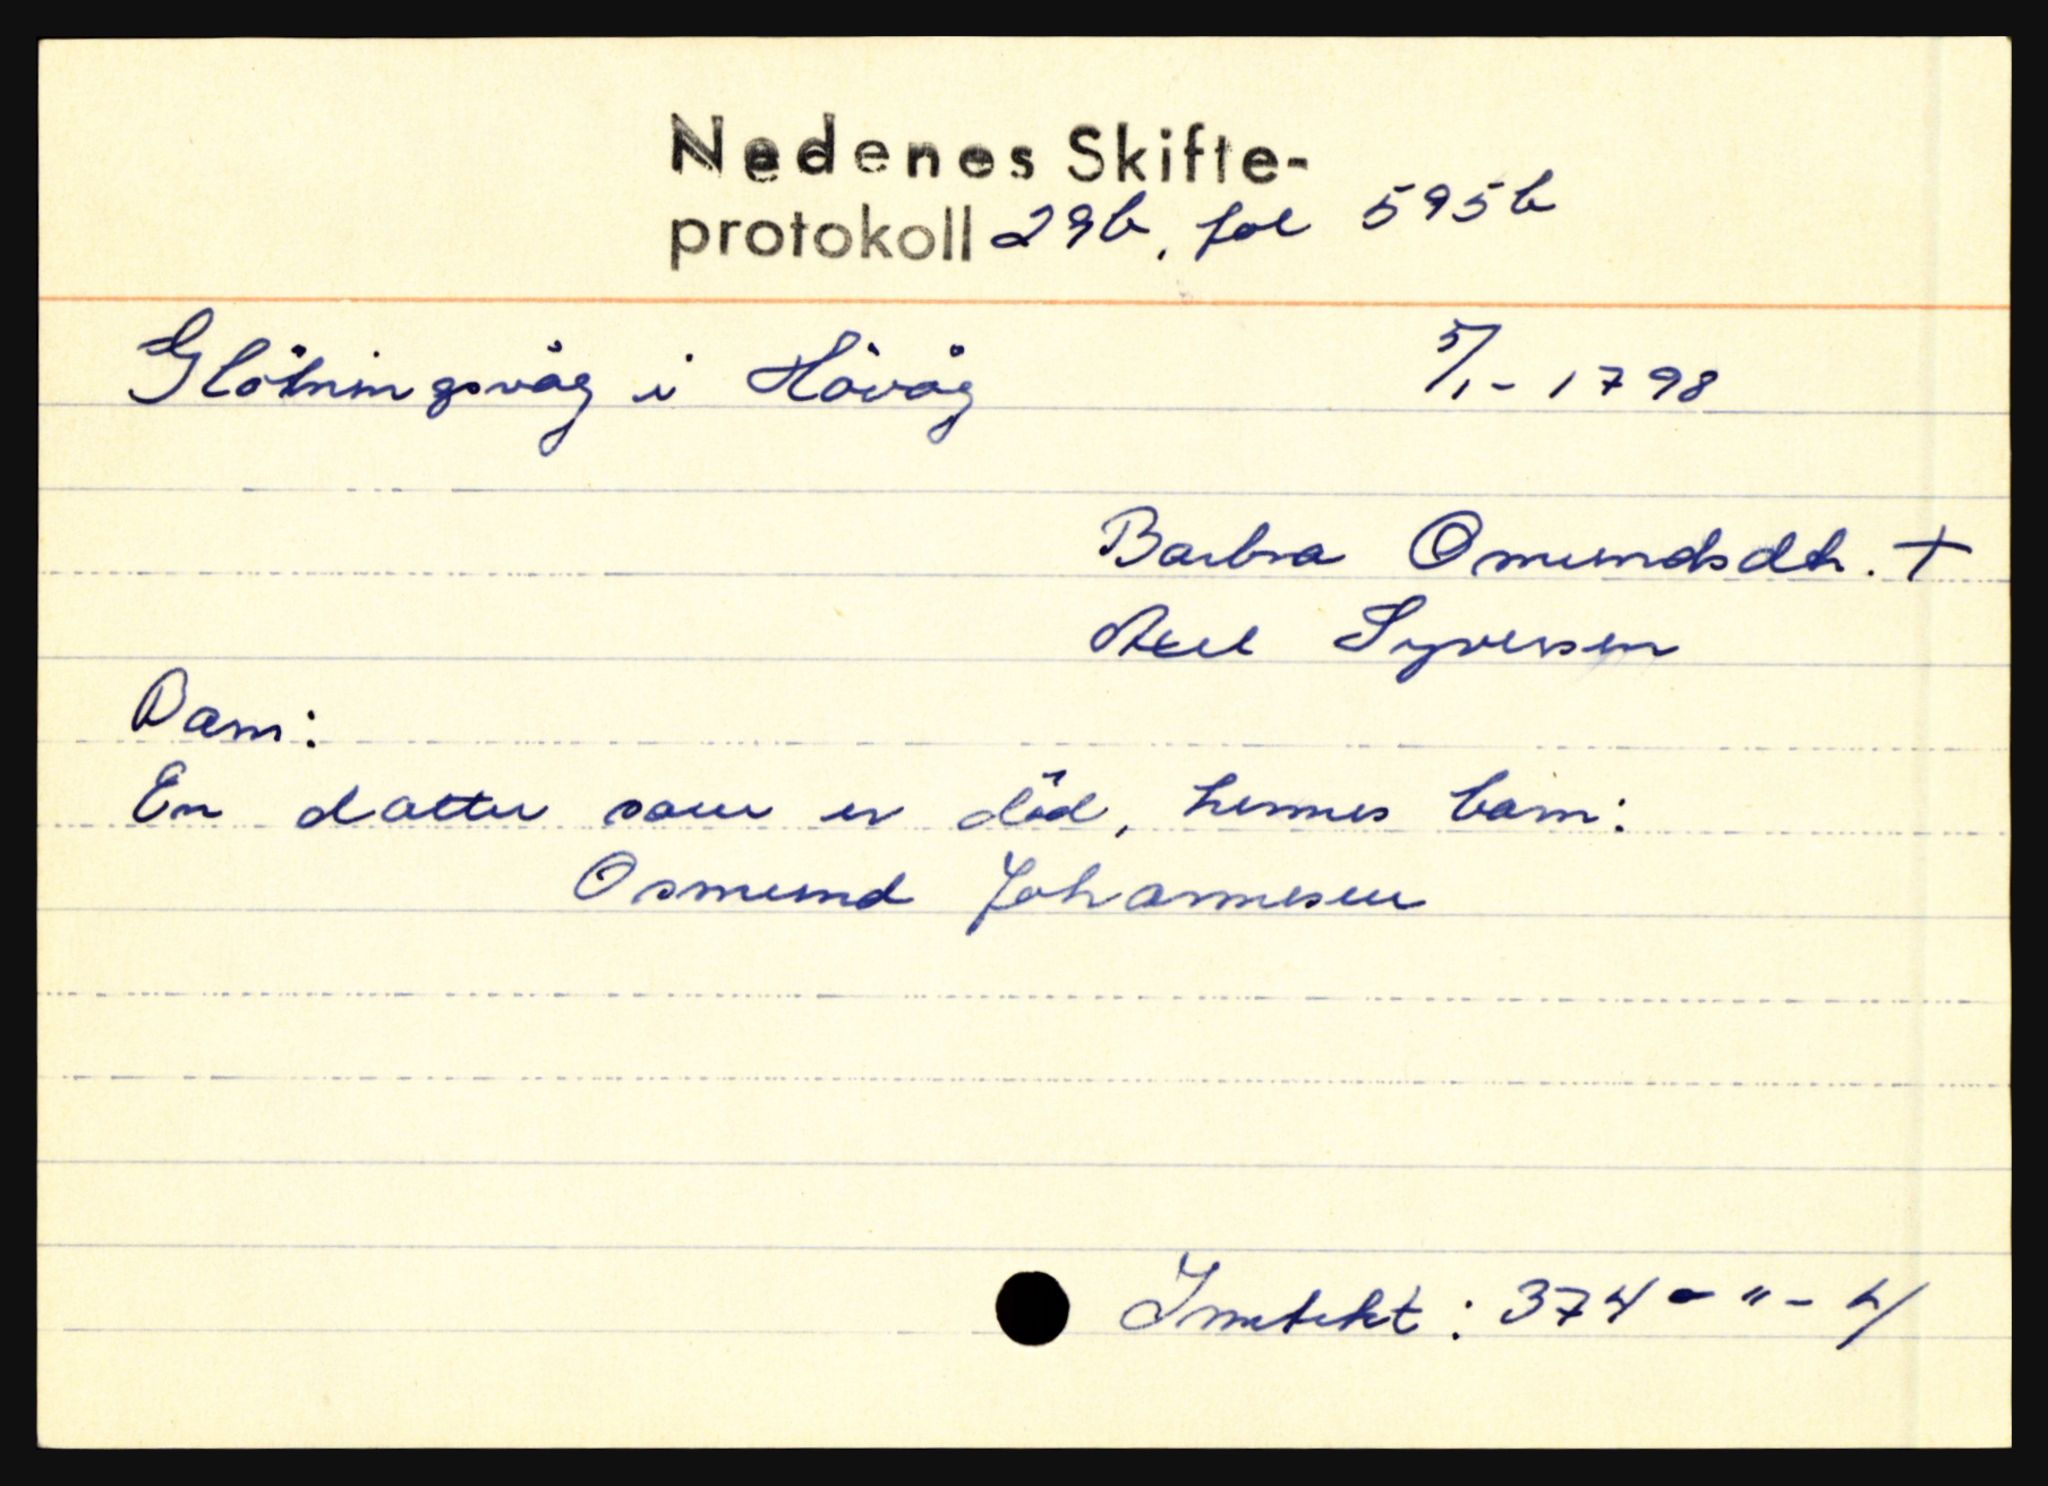 Nedenes Skifte-
protokoll 29b, fol 595b
Glötningsvåg i Hövåg 5/1- 1798
Barbra Omundsdtr. +
Axel Syversen
Barn:
En datter som er död, hennes barn:
Osmund Johannesen
Inntekt: 374 - " - 4